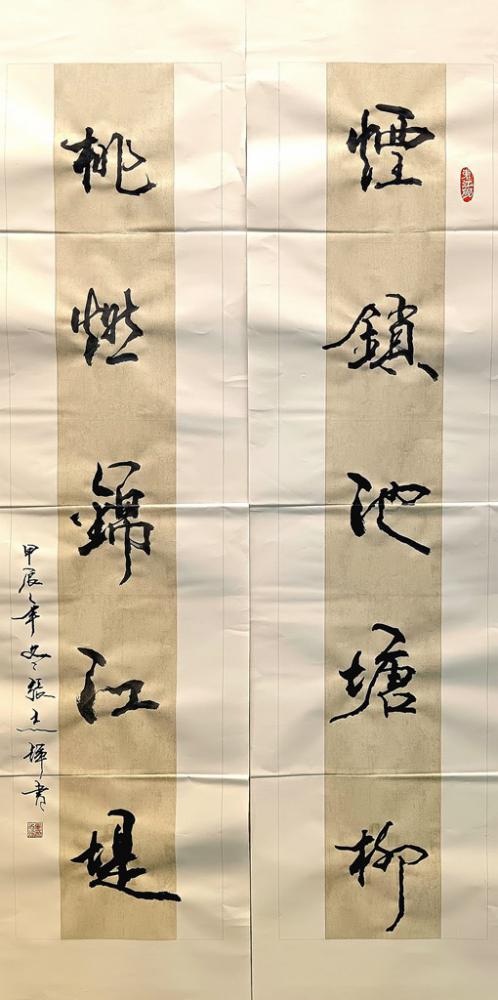 煙鎖池塘柳
桃燃錦江堤
甲辰年冬張杰輝書